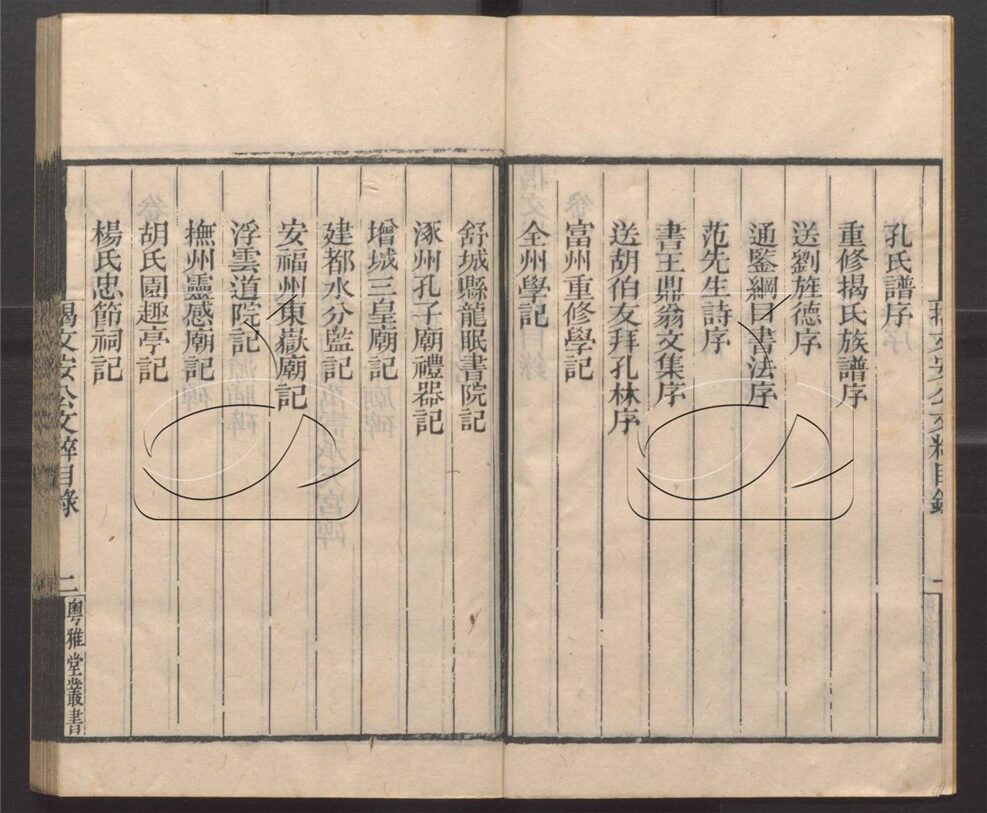 孔氏譜序
重修揭氏族譜序
送劉旌德序
通鑒綱目書法序
范先生詩序
書王鼎翁文集序
送胡伯友拜孔林序
富州重修學記
全州學記
舒城縣龍眠書院記
涿州孔子廟禮器記
增城三皇廟記
建都水分監記
安福州東嶽廟記
浮雲道院記
撫州靈感廟記
胡氏園趣亭記
楊氏忠節祠記
揭文安公文粹目錄
二
粵雅堂叢書